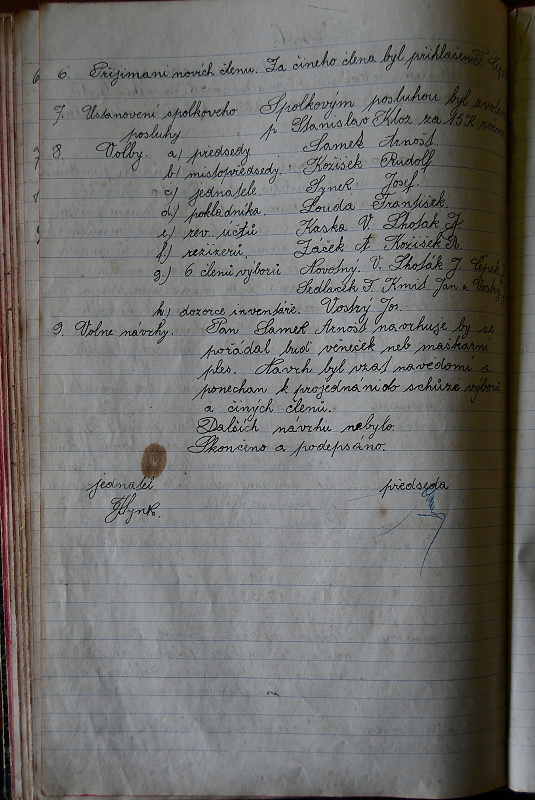 6. Přijimani novích členu. Za čineho člena byl přihlašen T.
7. Ustanovení spolkoveho Spolkovým posluhou byl zvolen
posluhy. p. Stanislav Kloz za 15 K
8. Volby. a) předsedy Samek Arnošt.
b) mistopředsedy. Kožišek Rudolf
c) jednatele Synek Josef.
d) pokladníka. Louda František.
e) rev. učtů Kaska V. Lhoťak J.
f) režizerů. Záček A Kožišek R
g) 6 členů výborů Novotný. V. Lhoťák J.
Sedlaček F. Kmid Jan a
h) dozorce inventáře. Vostrý Jos.
9. Volne navrhy. Pan Samek Arnošt navrhuje by se
pořádal buď věneček neb maškarní
ples. Navrh byl vzat navědomí a
ponechan k projednáni do schůze výborů
a činých členů.
Dalších návrhu nebylo.
Skončeno a podepsáno.
jednatel předseda
JSynk.